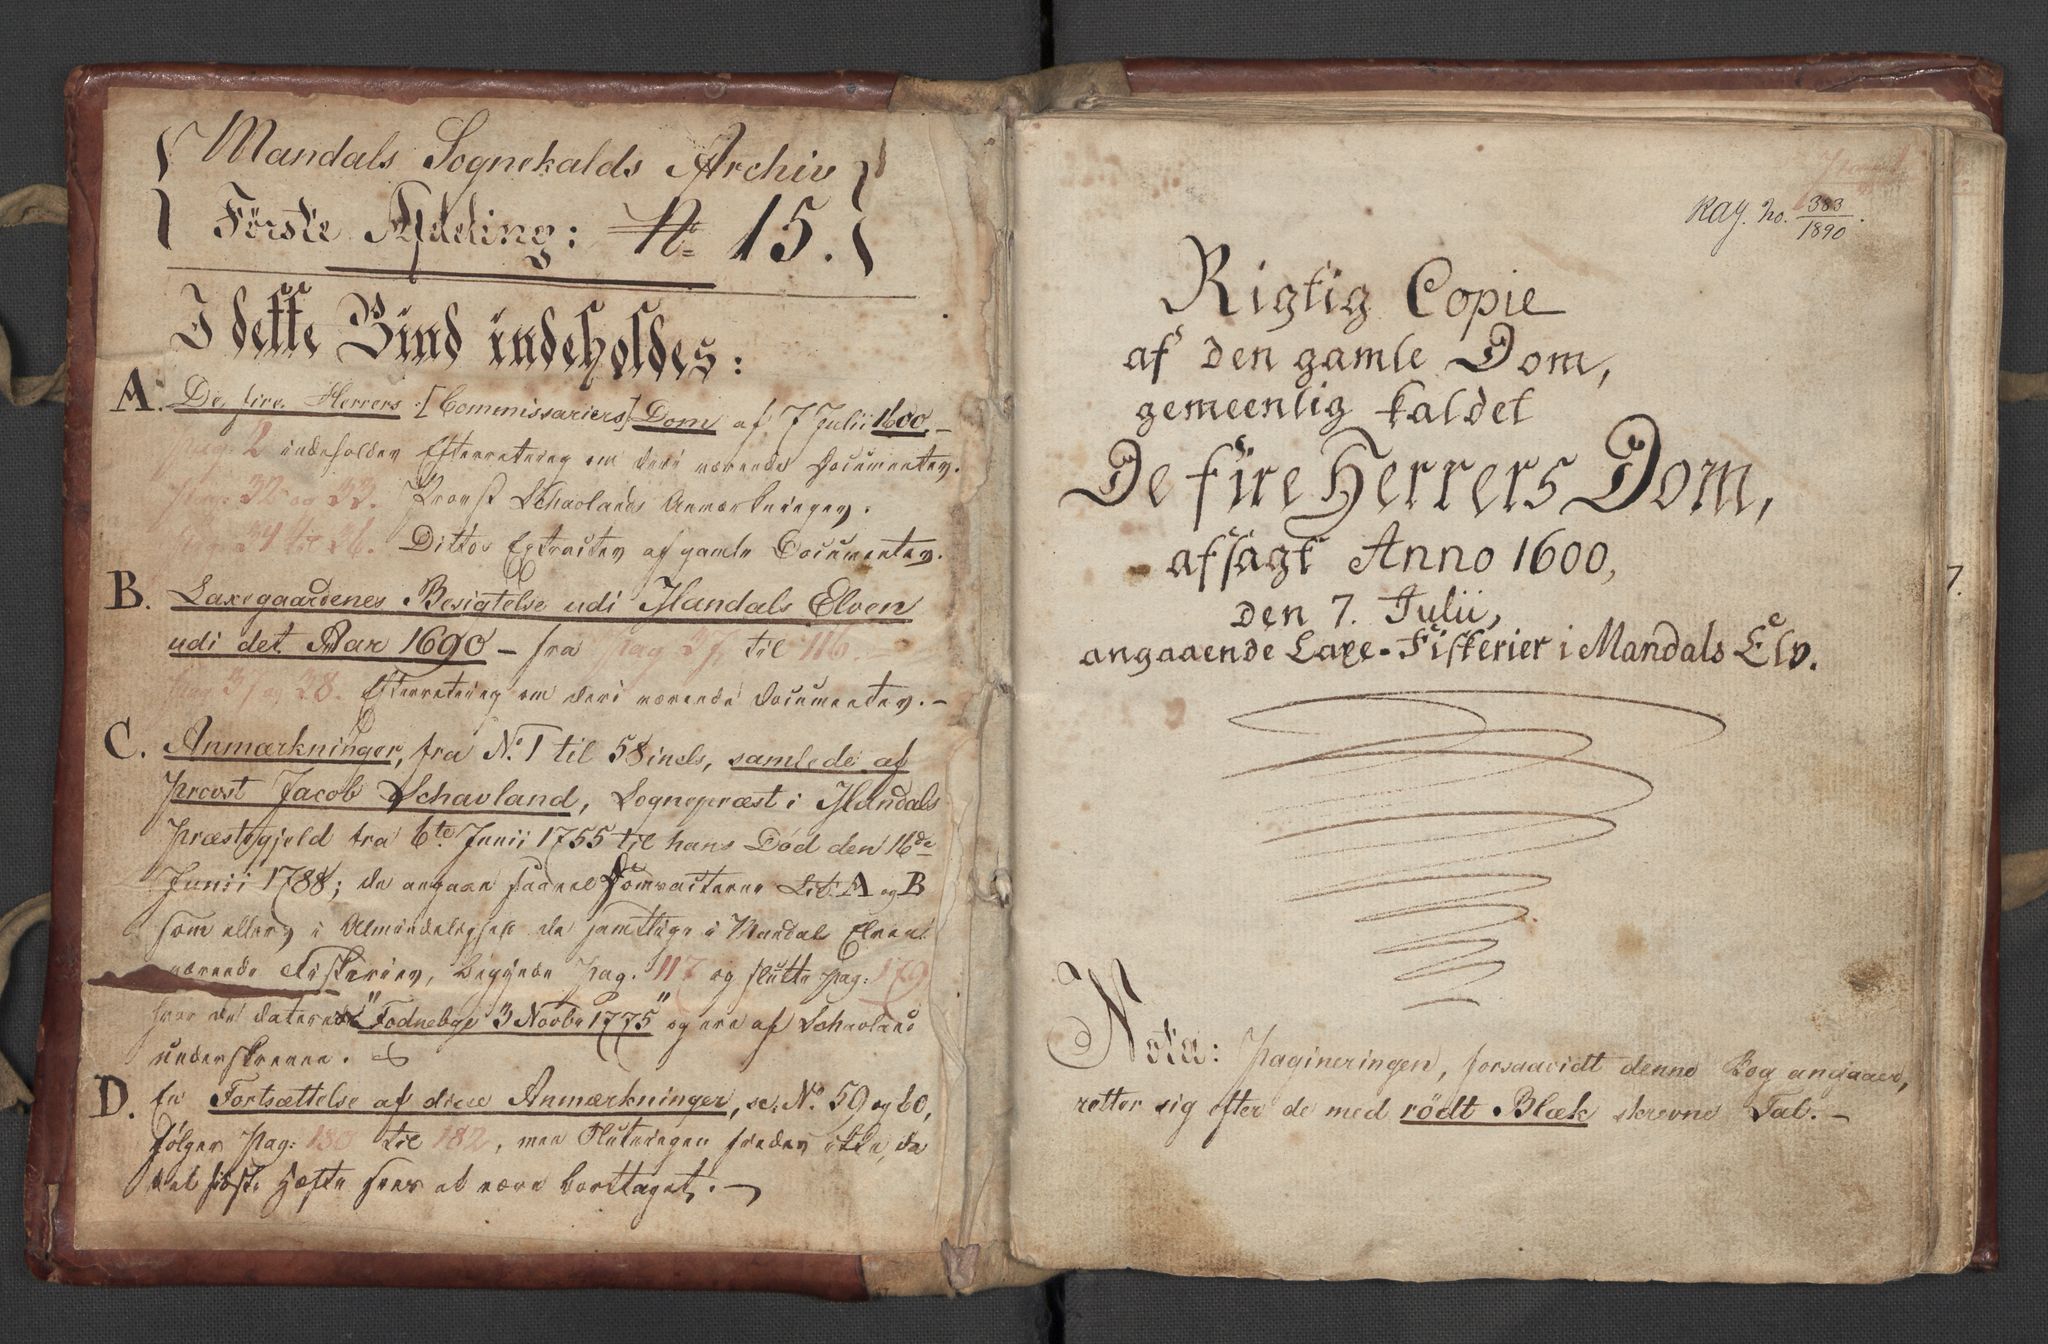 Mandals Sognekalds Archiv
Förste Afdeling: No 15.
I dette Bind indeholdes:
A. De fire Herrers [Commissariers] Dom af 7 Julii 1600. –
pag: 2 indeholder Efterretning om deri værende Documenter.
pag: 32 og 33. Provst Schavlands Anmærkninger.
pag: 34 til 36. Dittos Extracter af gamle Documenter.
B. Laxegaardenes Besigtelse udi Mandals Elven
udi det Aar 1690 – fra pag 37 til 116. –
pag 37 og 38. Efterretning om deri værende Documenter. –
C. Anmærkninger, fra No. 1 til 58 incls, samlede af
Provst Jacob Schavland, Sognepræst i Mandals
Præstegjeld fra 6te Junii 1755 til hans Död den 16de
Junii 1788; de angaae saavel Lit: A og B
som ellers i Almindelighed de samtlige i Mandals Elven
værende Fiskerier, begynde pag. 117 og slutte pag: 179
hvor de daterede "Fodnebye 3 Novbr 1775" og ere af Schavland
underskrevne.
D. En Fortsættelse af disse Anmærkninger, sc: No. 59 og 60,
fölger pag: 180 til 182, men Slutningen findes ikke, da
det sidste Hæfte synes at være borttaget. –
pag. 1
Kay. no. 383/1890.
Rigtig Copie
af den gamle Dom,
gemeenlig kaldet
De fire Herrers Dom,
afsagt Anno 1600,
den 7. Julii,
angaaende Laxe-Fiskerier i Mandals Elv.
Nota: Pagineringen, forsaavidt denne Bog angaaer,
retter sig efter de med rödt Blæk skrevne Tal. –
7.